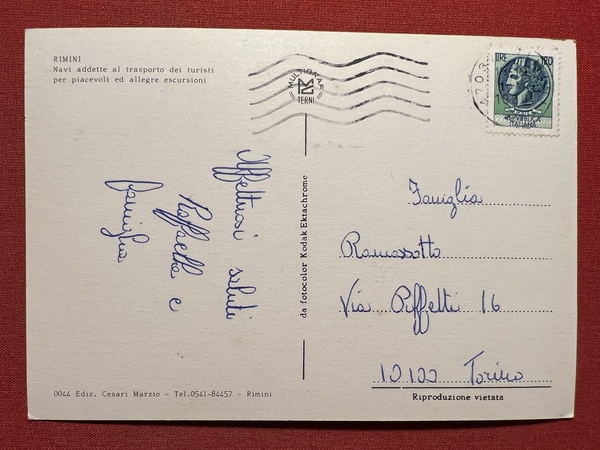 RIMINI
Navi addette al trasporto dei turisti
per piacevoli ed allegre escursioni
MULTIGRAF
TERNI
LIRE 120
REPUBBLICA
ITALIANA
Affettuosi saluti
Raffaella e
famiglia
da fotocolor Kodak Ektachrome
Famiglia
Ramassotto
Via Piffetti 16
10100 Torino
Riproduzione vietata
0044 Ediz. Cesari Marzio - Tel.0541-84457 - Rimini